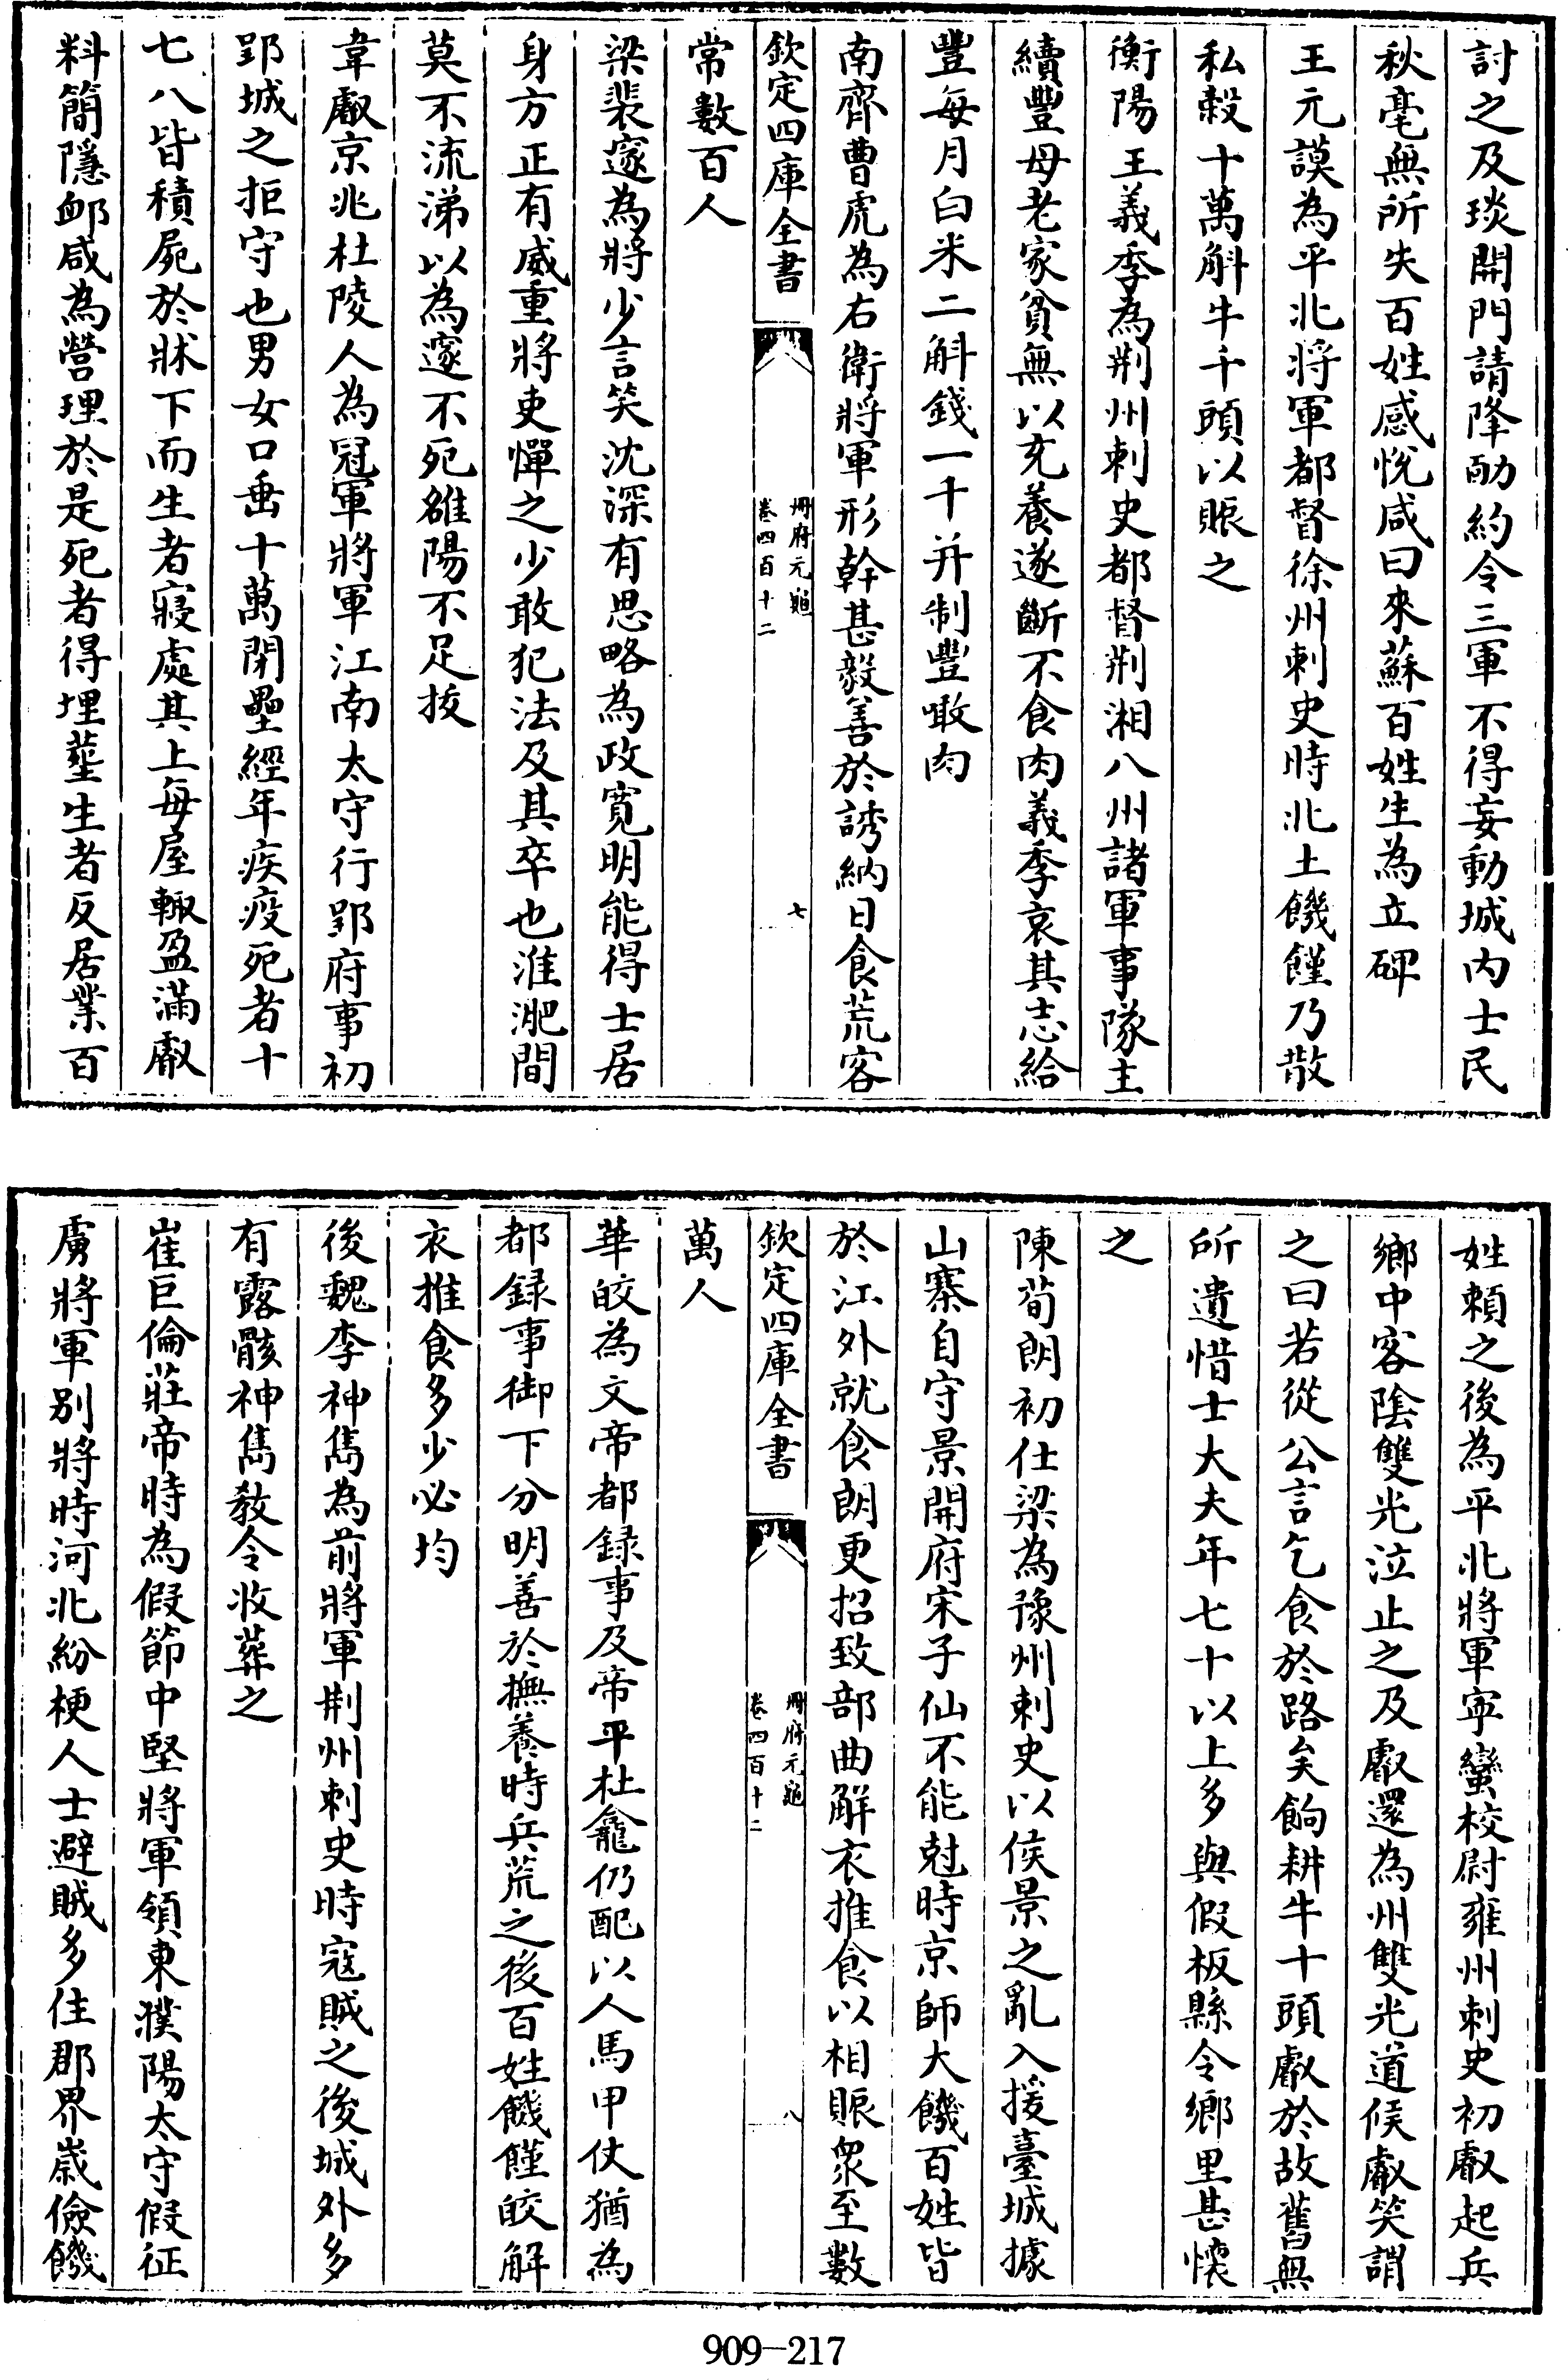 討之及琰開門請降勔約令三軍不得妄動城内士民
秋毫無所失百姓感悅咸曰來蘇百姓生為立碑
王元謨為平北將軍都督徐州刺史時北土饑饉乃散
私穀十萬斛牛千頭以賑之
衡陽王義季為荆州刺史都督荆湘八州諸軍事隊主
續豐母老家貧無以充養遂斷不食肉義季哀其志給
豐每月白米二斛錢一千并制豐噉肉
南齊曹虎為右衛將軍形幹甚毅善於誘納日食荒客
欽定四庫全書
冊府元龜
卷四百十二
七
常數百人
梁裴邃為將少言笑沈深有思略為政寛明能得士居
身方正有威重將吏憚之少敢犯法及其卒也淮淝間
莫不流涕以為邃不死雒陽不足拔
韋叡京兆杜陵人為冠軍將軍江南太守行郢府事初
郢城之拒守也男女口垂十萬閉壘經年疾疫死者十
七八皆積屍於牀下而生者寢處其上每屋輒盈滿叡
料簡隱卹咸為營理於是死者得埋塟生者反居業百
姓頼之後為平北將軍寜蠻校尉雍州刺史初叡起兵
鄉中客陰雙光泣止之及叡還為州雙光道候叡笑謂
之曰若從公言乞食於路矣餉耕牛十頭叡於故舊無
所遺惜士大夫年七十以上多與假板縣令鄉里甚懷
之
陳荀朗初仕梁為豫州刺史以侯景之亂入援臺城據
山寨自守景開府宋子仙不能尅時京師大饑百姓皆
於江外就食朗更招致部曲解衣推食以相賑衆至數
欽定四庫全書
冊府元龜
卷四百十二
八
萬人
華皎為文帝都録事及帝平杜龕仍配以人馬甲仗猶為
都録事御下分明善於撫養時兵荒之後百姓饑饉皎解
衣推食多少必均
後魏李神雋為前將軍荆州刺史時宼賊之後城外多
有露骸神雋教令收葬之
崔巨倫莊帝時為假節中堅將軍領東濮陽太守假征
虜將軍别將時河北紛梗人士避賊多住郡界嵗儉饑
909-217